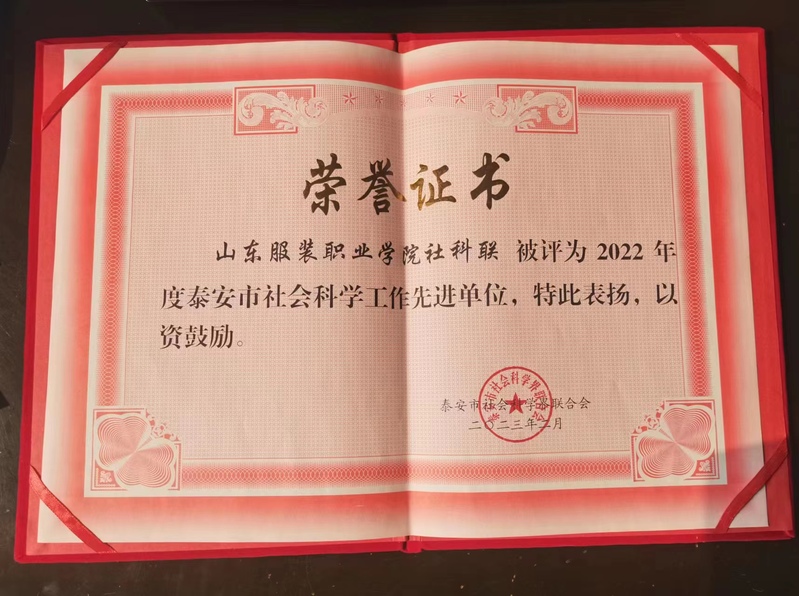 荣誉证书
山东服装职业学院社科联 被评为 2022 年
度泰安市社会科学工作先进单位，特此表扬，以
资鼓励。
泰安市社会科学界联合会
二〇二三年二月
泰安市社会科学界联合会